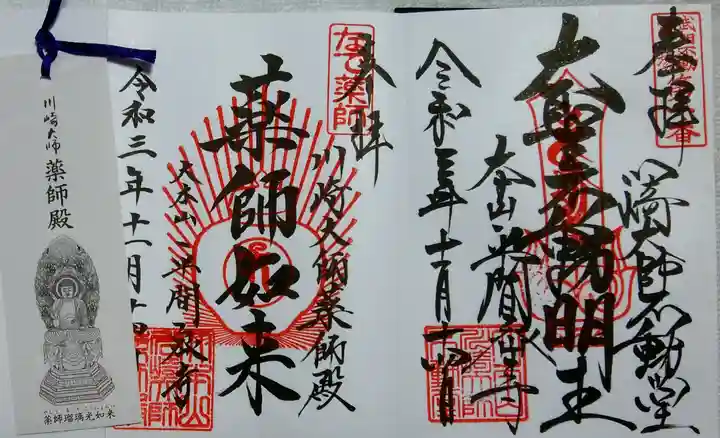 奉拝
川崎大師不動堂
大聖不動明王
大本山平間寺
令和三年十一月十四日
奉拝
なで薬師
川崎大師薬師殿
薬師如来
大本山平間寺
令和三年十一月十四
川崎大師
薬師殿
薬師瑠璃光如来